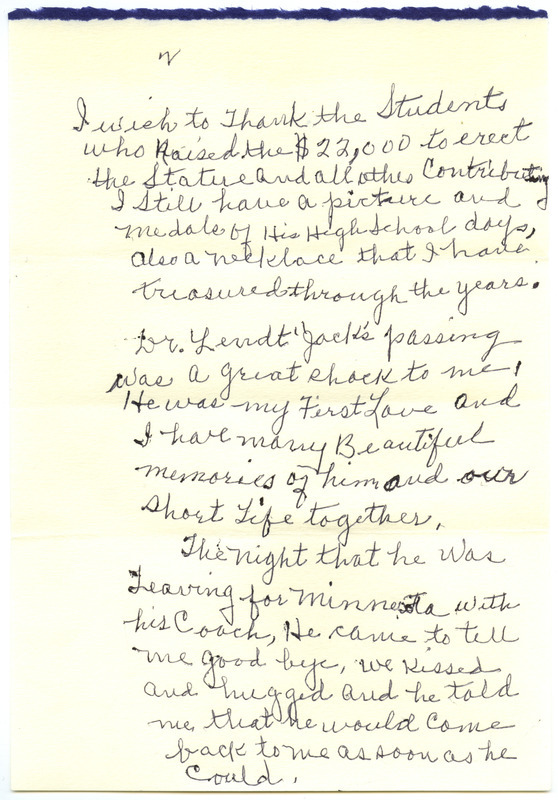 2
I wish to Thank the Students
who Raised the $22,000 to erect
the Statue and all other Contributing
I Still have a picture and
medals of His High School days,
also a necklace that I have
treasured through the years.
Dr. Lendt Jack's passing
was a great shock to me,
He was my First Love and
I have many Beautiful
memories of him and our
short Life together.
The night that he was
Leaving for Minnesota with
his Coach, He came to tell
me good bye, we Kissed
and hugged and he told
me, that he would Come
back to me as soon as he
Could.